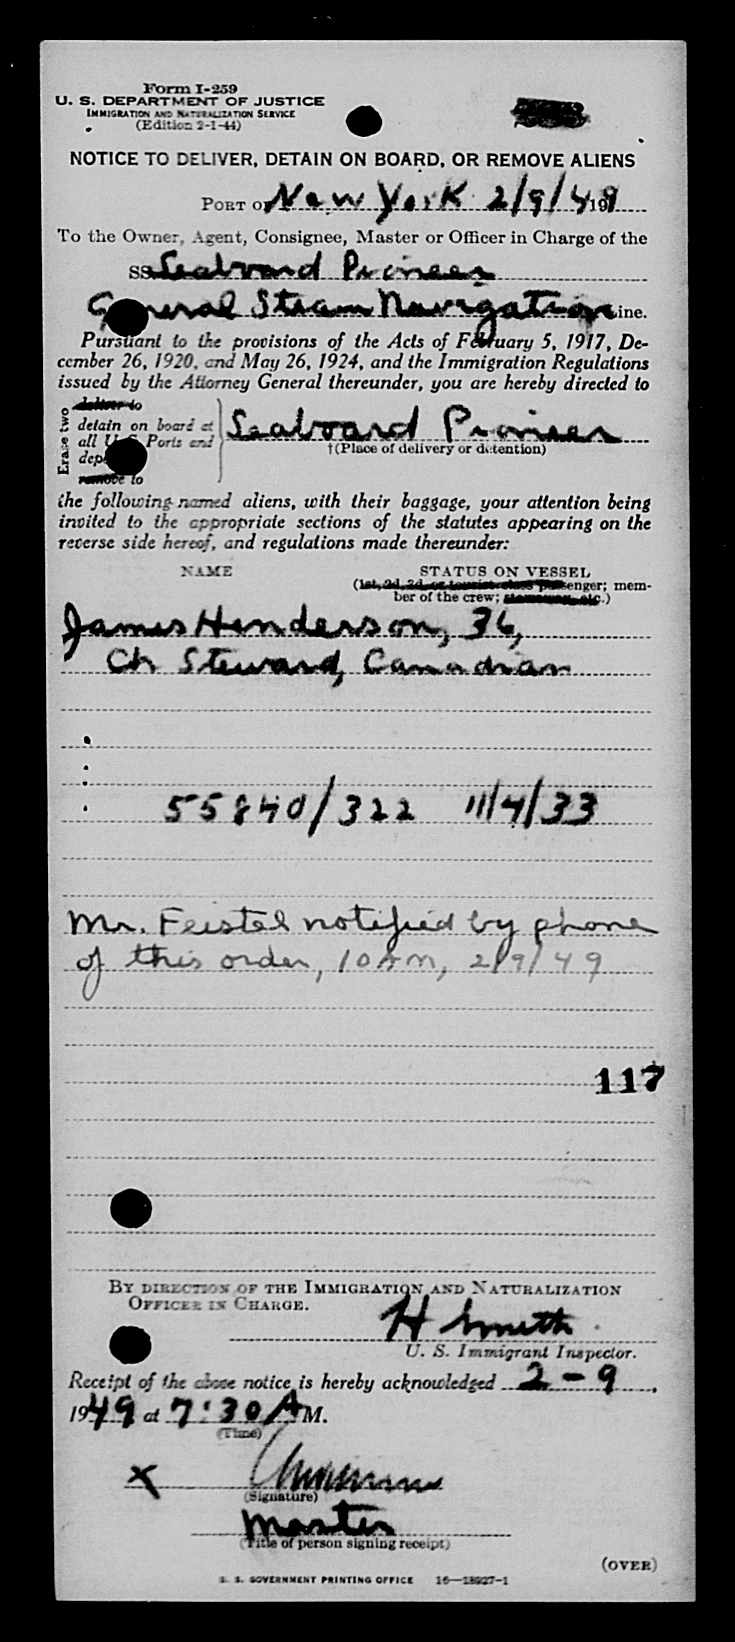 Form I-259
U. S. DEPARTMENT OF JUSTICE
IMMIGRATION AND NATURALIZATION SERVICE
(Edition 2-1-44)
NOTICE TO DELIVER, DETAIN ON BOARD, OR REMOVE ALIENS
PORT OF New York 2/9/49
To the Owner, Agent, Consignee, Master or Officer in Charge of the
SS Seaboard Pioneer
General Steam Navigation Line.
Pursuant to the provisions of the Acts of February 5, 1917, De-
cember 26, 1920, and May 26, 1924, and the Immigration Regulations
issued by the Attorney General thereunder, you are hereby directed to
Erase two
deliver to
detain on board at
all U. S. Ports and
remove to
Seaboard Pioneer
†(Place of delivery or detention)
the following-named aliens, with their baggage, your attention being
invited to the appropriate sections of the statutes appearing on the
reverse side hereof, and regulations made thereunder:
NAME STATUS ON VESSEL
(1st, 2d, 3d, or tourist class passenger; mem-
ber of the crew; stowaway, etc.)
James Henderson, 36,
Ch Steward, Canadian
55840/322 11/4/33
Mr. Feistel notified by phone
of this order, 10 AM, 2/9/49
117
BY DIRECTION OF THE IMMIGRATION AND NATURALIZATION
OFFICER IN CHARGE.
H Smith
U. S. Immigrant Inspector.
Receipt of the above notice is hereby acknowledged 2-9,
1949 at 7:30 A M.
(Time)
X
(Signature)
Master
(Title of person signing receipt)
(OVER)
U. S. GOVERNMENT PRINTING OFFICE 16—18927-1